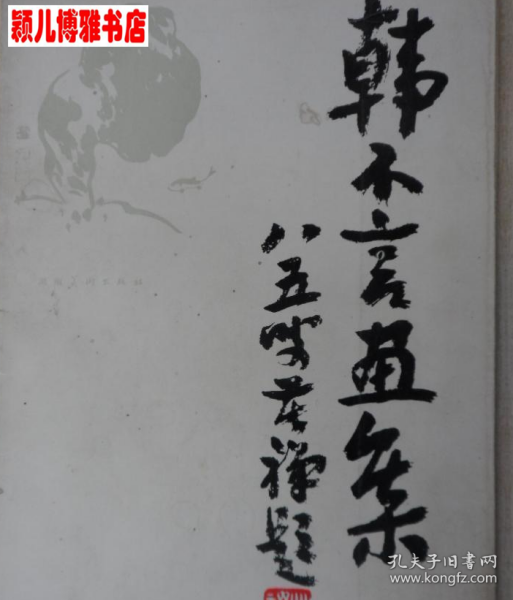 颖儿博雅书店
韩不言画集
八五叟苦禅题
美术出版社
孔夫子旧书网
www.kongfz.com